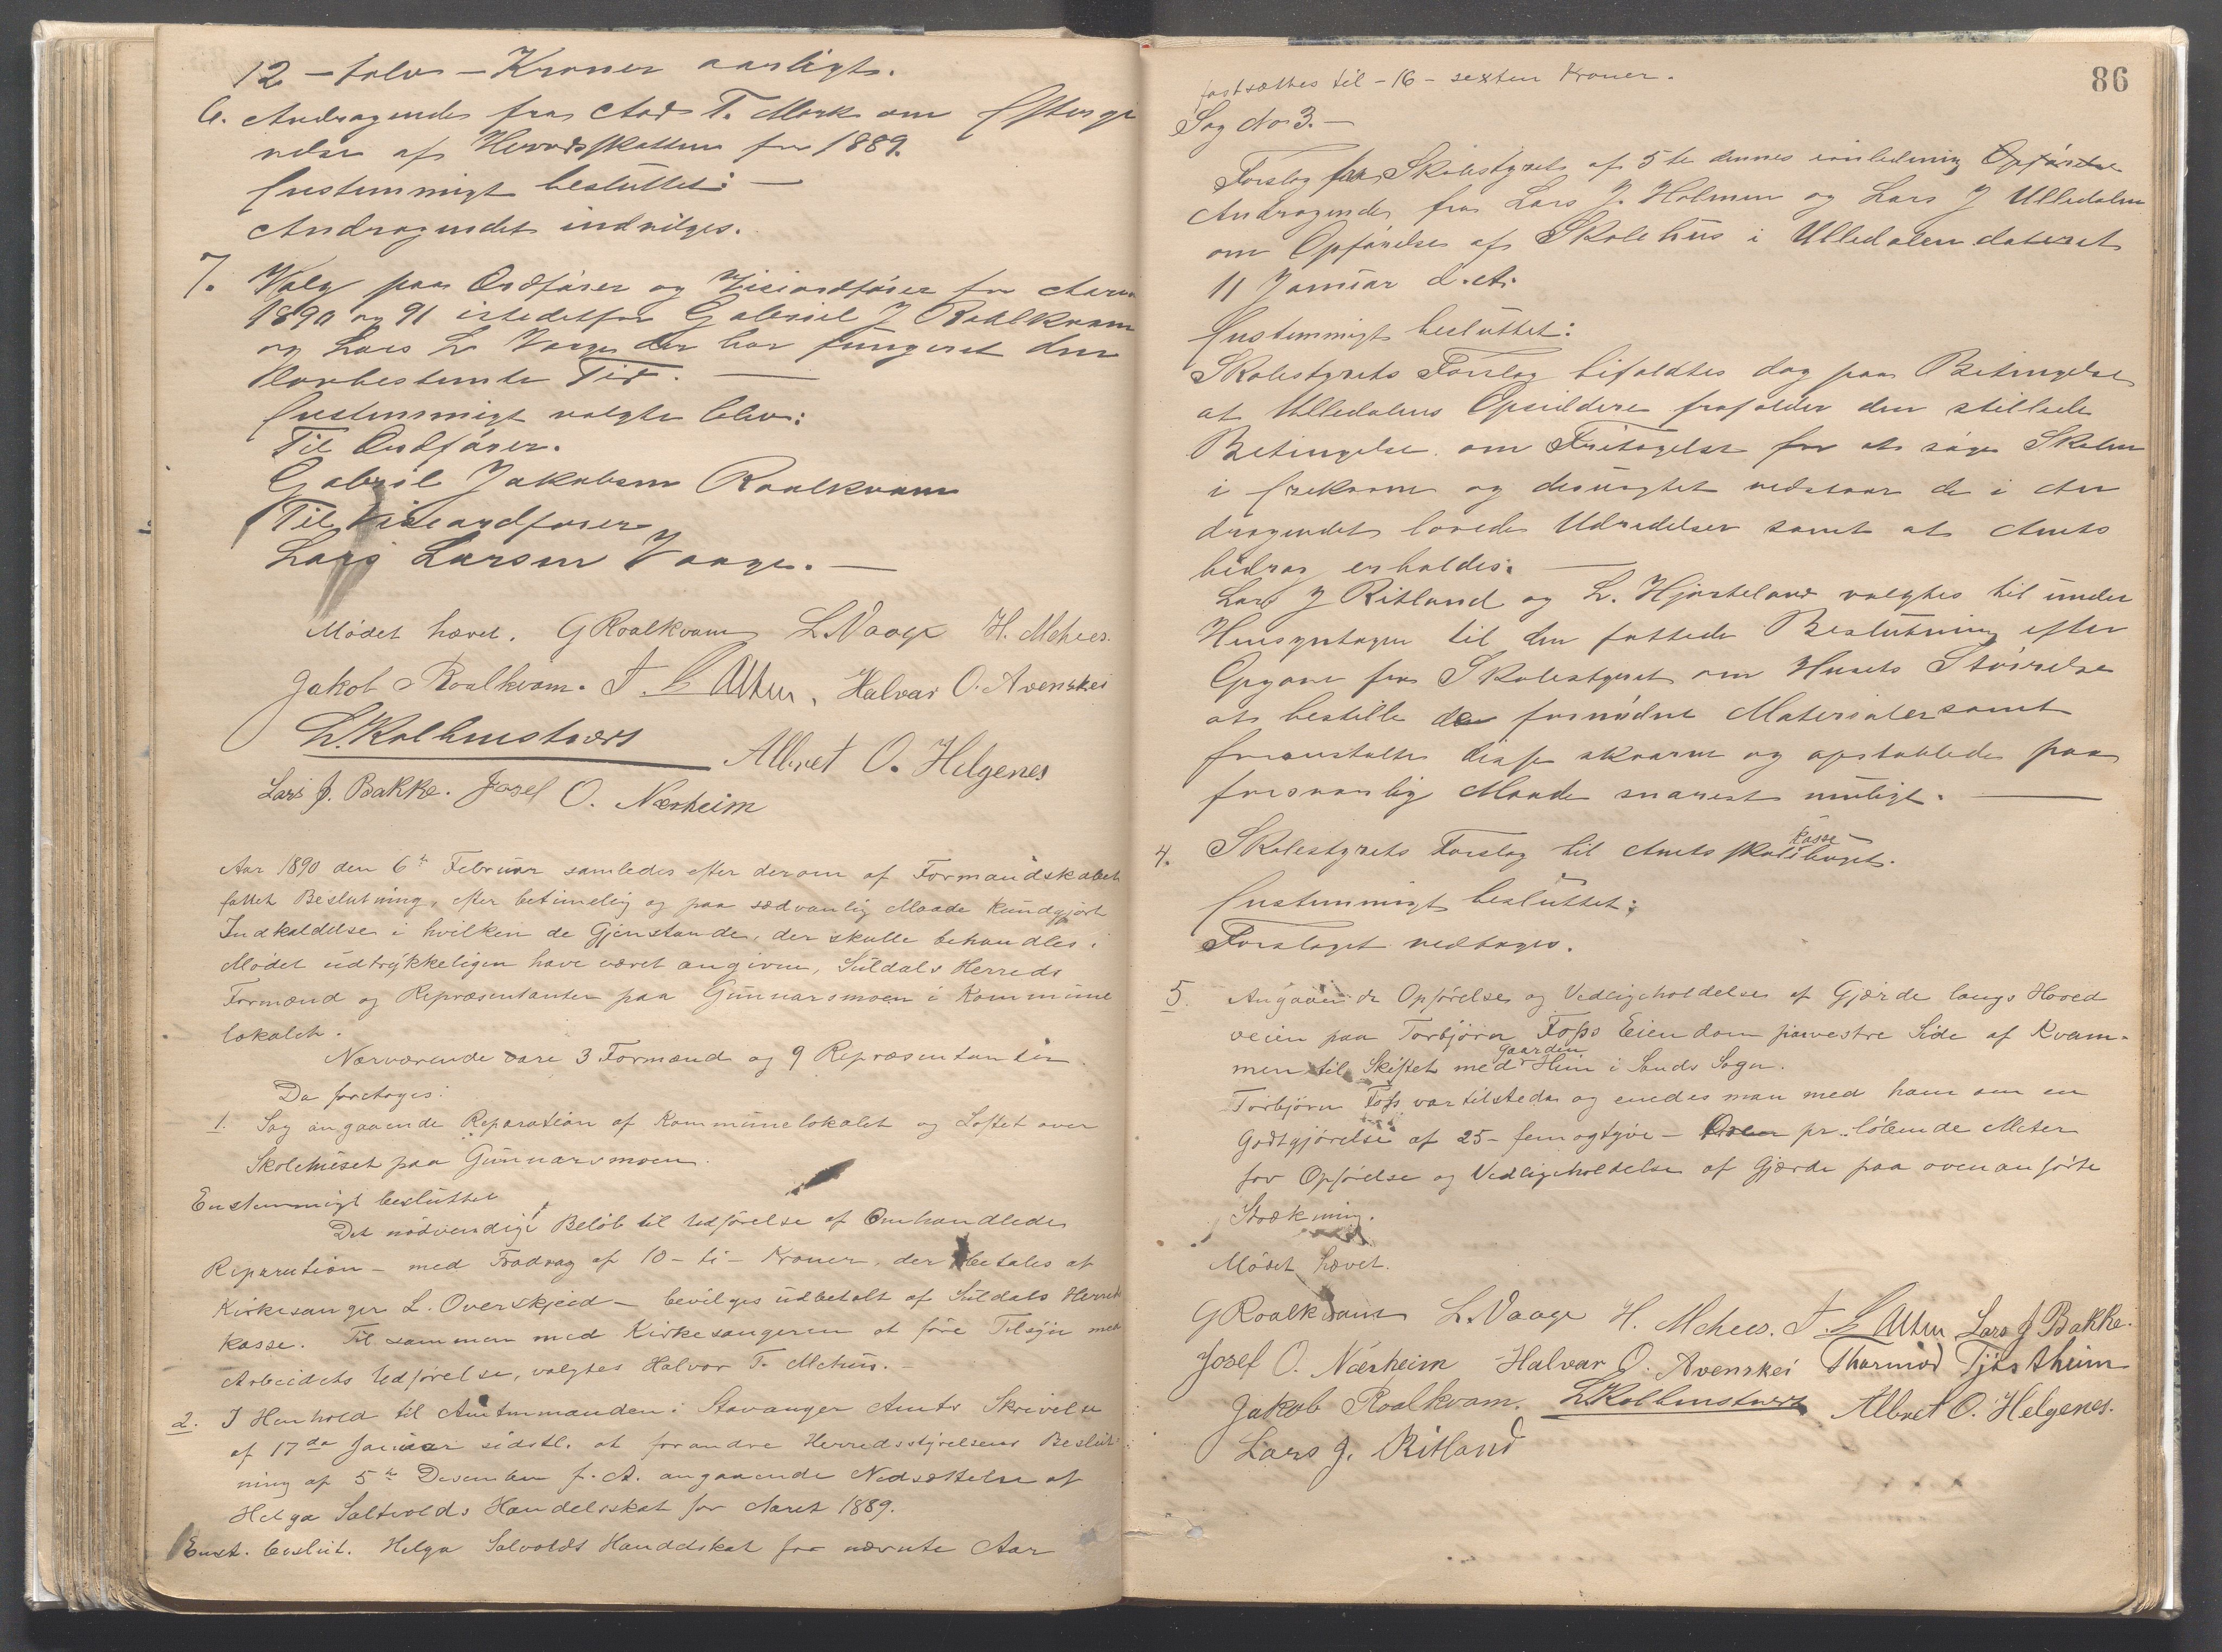 12 - tolv - Kroner aarligt.
6. Andragende fra Aad T. Mork om Eftergi
velse af Herredsskatten for 1889.
Enstemmigt besluttet: -
Andragendet indvilges.
7. Valg paa Ordfører og Viseordfører for Aarene
1890 og 91 istedetfor Gabriel J Roalkvam
og Lars L Vaage der har fungeret den
lovbestemte Tid. -
Enstemmigt valgte blev:
Til Ordfører.
Gabriel Jakobsen Roalkvam
Til Viseordfører
Lars Larsen Vaage. -
Mødet hævet. GRoalkvam L. Vaage H. Mehus.
Jakob Roalkvam. Halvar O. Avenskei
Albret O. Helgenes
Lars J. Bakke. Josef O. Nærheim
Aar 1890 den 6te Februar samledes efter derom af Formandskabet
fattet Beslutning, efter betimelig og paa sædvanlig Maade kundgjort
Indkaldelse i hvilken de Gjenstande, der skulle behandles i
Mødet udtrykkeligen have været angivne, Suldals Herreds
Formænd og Repræsentanter paa Gunnarsmoen i Kommune
lokalet.
Nærværende vare 3 Formænd og 9 Repræsentanter.
Da foretoges:
1. Sag angaaende Reparation af Kommunelokalet og Loftet over
Skolehuset paa Gunnarsmoen.
Enstemmigt besluttet
Det nødvendige Beløb til Udførelse af Omhandlede
Reparation - med Fradrag af 10 - ti - Kroner, der betales af
Kirkesanger L. Overskjeid - bevilges udbetalt af Suldals Herreds
kasse. Til sammen med Kirkesangeren at føre Tilsyn med
Arbeidets Udførelse, valgtes Halvor T. Mehus. -
2. I Henhold til Amtmanden i Stavanger Amts Skrivelse
af 17de Januar sidstl. at forandre Herredsstyrelsens Beslut-
ning af 5te Desember f. A. angaaende Nedsættelse af
Helga Saltvolds Handelsskat for Aaret 1889.
Enst. beslut. Helga Salvolds Handdskat for nævnte Aar
86
fastsættes til - 16 - sexten Kroner.
Sag No 3. -
Forslag fra Skolestyret af 5te dennes i anledning Opførelse
Andragende fra Lars J. Holmen og Lars J Ulledalen
om Opførelse af Skolehus i Ulledalen dateret
11 Januar d. A.
Enstemmigt besluttet:
Skolestyrets Forslag bifaldtes dog paa Betingelse
at Ulledalens Opsiddere frafalder den stillede
Betingelse om Fritagelse for at søge Skolen
i og desuagtet vedstaar de i An
dragendet lovede Udredelser samt at Amts
bidrag erholdes. -
Lars J Ritland og L. Hjorteland valgtes til under
Hensyntagen til den fattede Beslutning efter
Opgave fra Skolestyret om Husets Størrelse
at bestille de fornødne Materialer samt
foranstalte disse skaarne og opstablede paa
forsvarlig Maade snarest muligt. -
4. Skolestyrets Forslag til Amtsskolekassebuget.
Enstemmigt besluttet:
Forslaget vedtages.
5. Angaaende Opførelse og Vedligeholdelse af Gjærde langs Hoved
veien paa Torbjørn Foss Eiendom paa vestre Side af Kvam-
men til Skiftet med gaarden Hiim i Sands Sogn.
Torbjørn Foss var tilstede og enedes man med ham om en
Godtgjørelse af 25 - femogtyve - Øre pr. løbende Meter
for Opførelse og Vedligeholdelse af Gjærde paa ovenanførte
Strækning.
Mødet hævet.
GRoalkvam L. Vaage H. Mehus. Lars J Bakke.
Josef O. Nærheim Halvar O. Avenskei Thormod Tjøstheim
Jakob Roalkvam. Albret O. Helgenes.
Lars J. Ritland